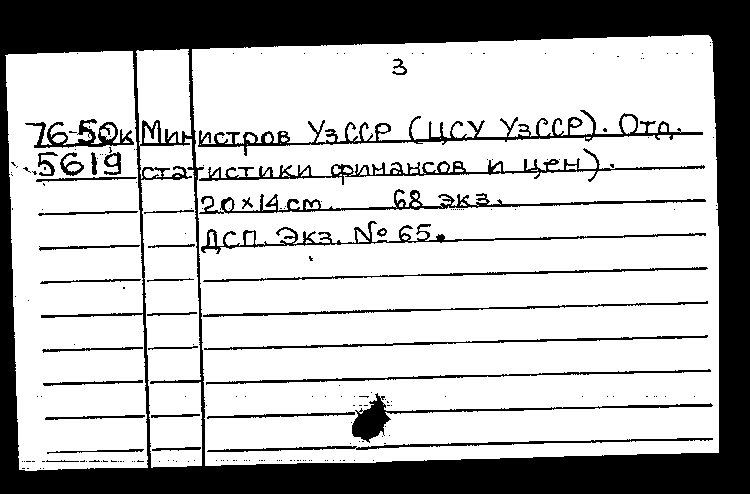 3
76-50к Министров УзССР (ЦСУ УзССР). Отд.
5619 статистики финансов и цен).
20×14 cm. 68 экз.
ДСП. Экз. № 65.